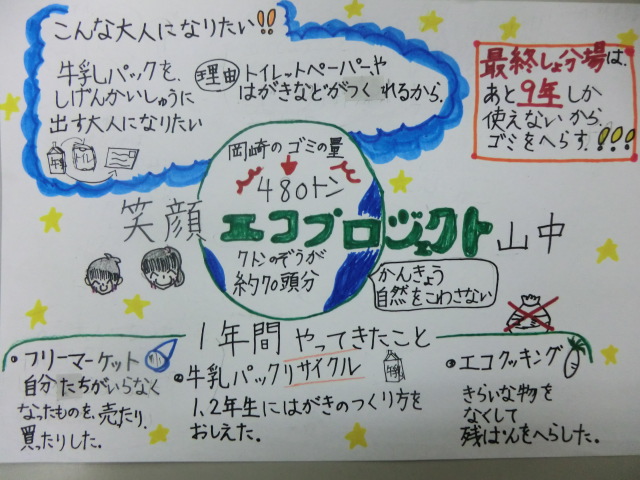 こんな大人になりたい!!
牛乳パックを、
しげんかいしゅうに
出す大人になりたい
理由
トイレットペーパーや
はがきなどがつくれるから。
最終しょ分場は、
あと9年しか
使えないから
ゴミをへらす!!!
岡崎のゴミの量
480トン
笑顔
エコプロジェクト
山中
7トンのぞうが
約70頭分
かんきょう
自然をこわさない
1年間やってきたこと
・フリーマーケット
自分たちがいらなく
なったものを、売たり、
買ったりした。
・牛乳パックリサイクル
1、2年生にはがきのつくり方を
おしえた。
・エコクッキング
きらいな物を
なくして
残ぱんをへらした。